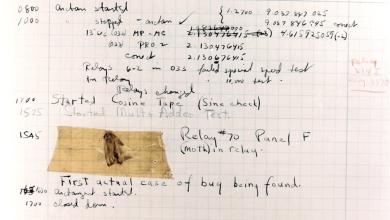 0800 Antan started
1000 " stopped - antan ✓ { 1.2700 9.037 847 025
9.037 846 995 correct
13"uc (032) MP-MC 2.130476415 (-2) 4.615925059(-2)
(033) PRO 2 2.130476415
correct 2.130676415
Relays 6-2 in 033 failed special speed test
in relay 10,000 test.
Relays changed
1700 Started Cosine Tape (Sine check)
1525 Started Mult+Adder Test.
1545 Relay #70 Panel F
(moth) in relay.
First actual case of bug being found.
1630 antangent started.
1700 closed down.
Relay